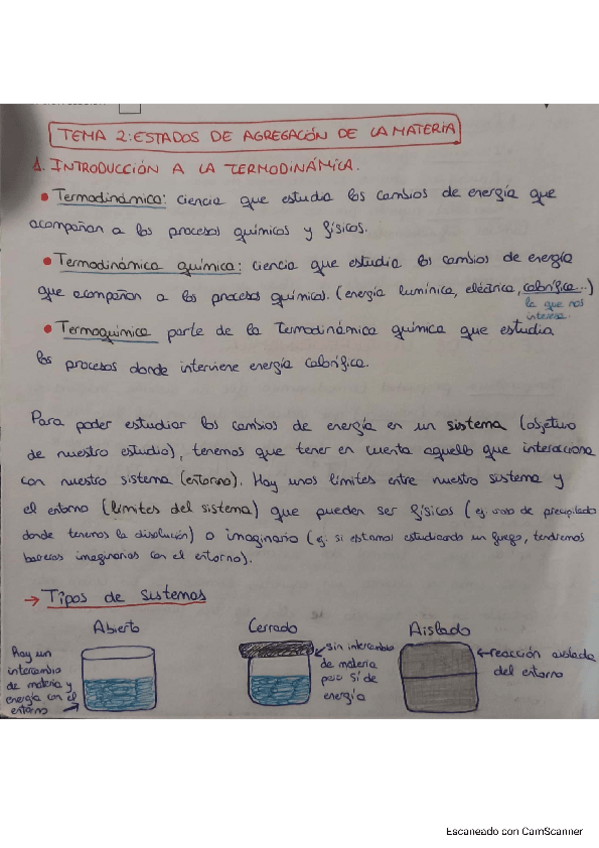 TEMA 2: ESTADOS DE AGREGACIÓN DE LA MATERIA
1. INTRODUCCIÓN A LA TERMODINÁMICA.
• Termodinámica: ciencia que estudia los cambios de energía que
acompañan a los procesos químicos y físicos.
• Termodinámica química: ciencia que estudia los cambios de energía
que acompañan a los procesos químicos. (energía lumínica, eléctrica, calorífica...)
la que nos
interesa.
• Termoquímica parte de la Termodinámica química que estudia
los procesos donde interviene energía calorífica.
Para poder estudiar los cambios de energía en un sistema (objetivo
de nuestro estudio), tenemos que tener en cuenta aquello que interacciona
con nuestro sistema (entorno). Hay unos límites entre nuestro sistema y
el entorno (límites del sistema) que pueden ser físicos (ej: vaso de precipitado
donde tenemos la disolución) o imaginario (ej: si estamos estudiando un fuego, tendremos
barreras imaginarias con el entorno).
→ Tipos de sistemas
Abierto
Cerrado
Aislado
Hay un
intercambio
de materia y
energía con el
entorno
sin intercambio
de materia
pero sí de
energía
reacción aislada
del entorno
Escaneado con CamScanner